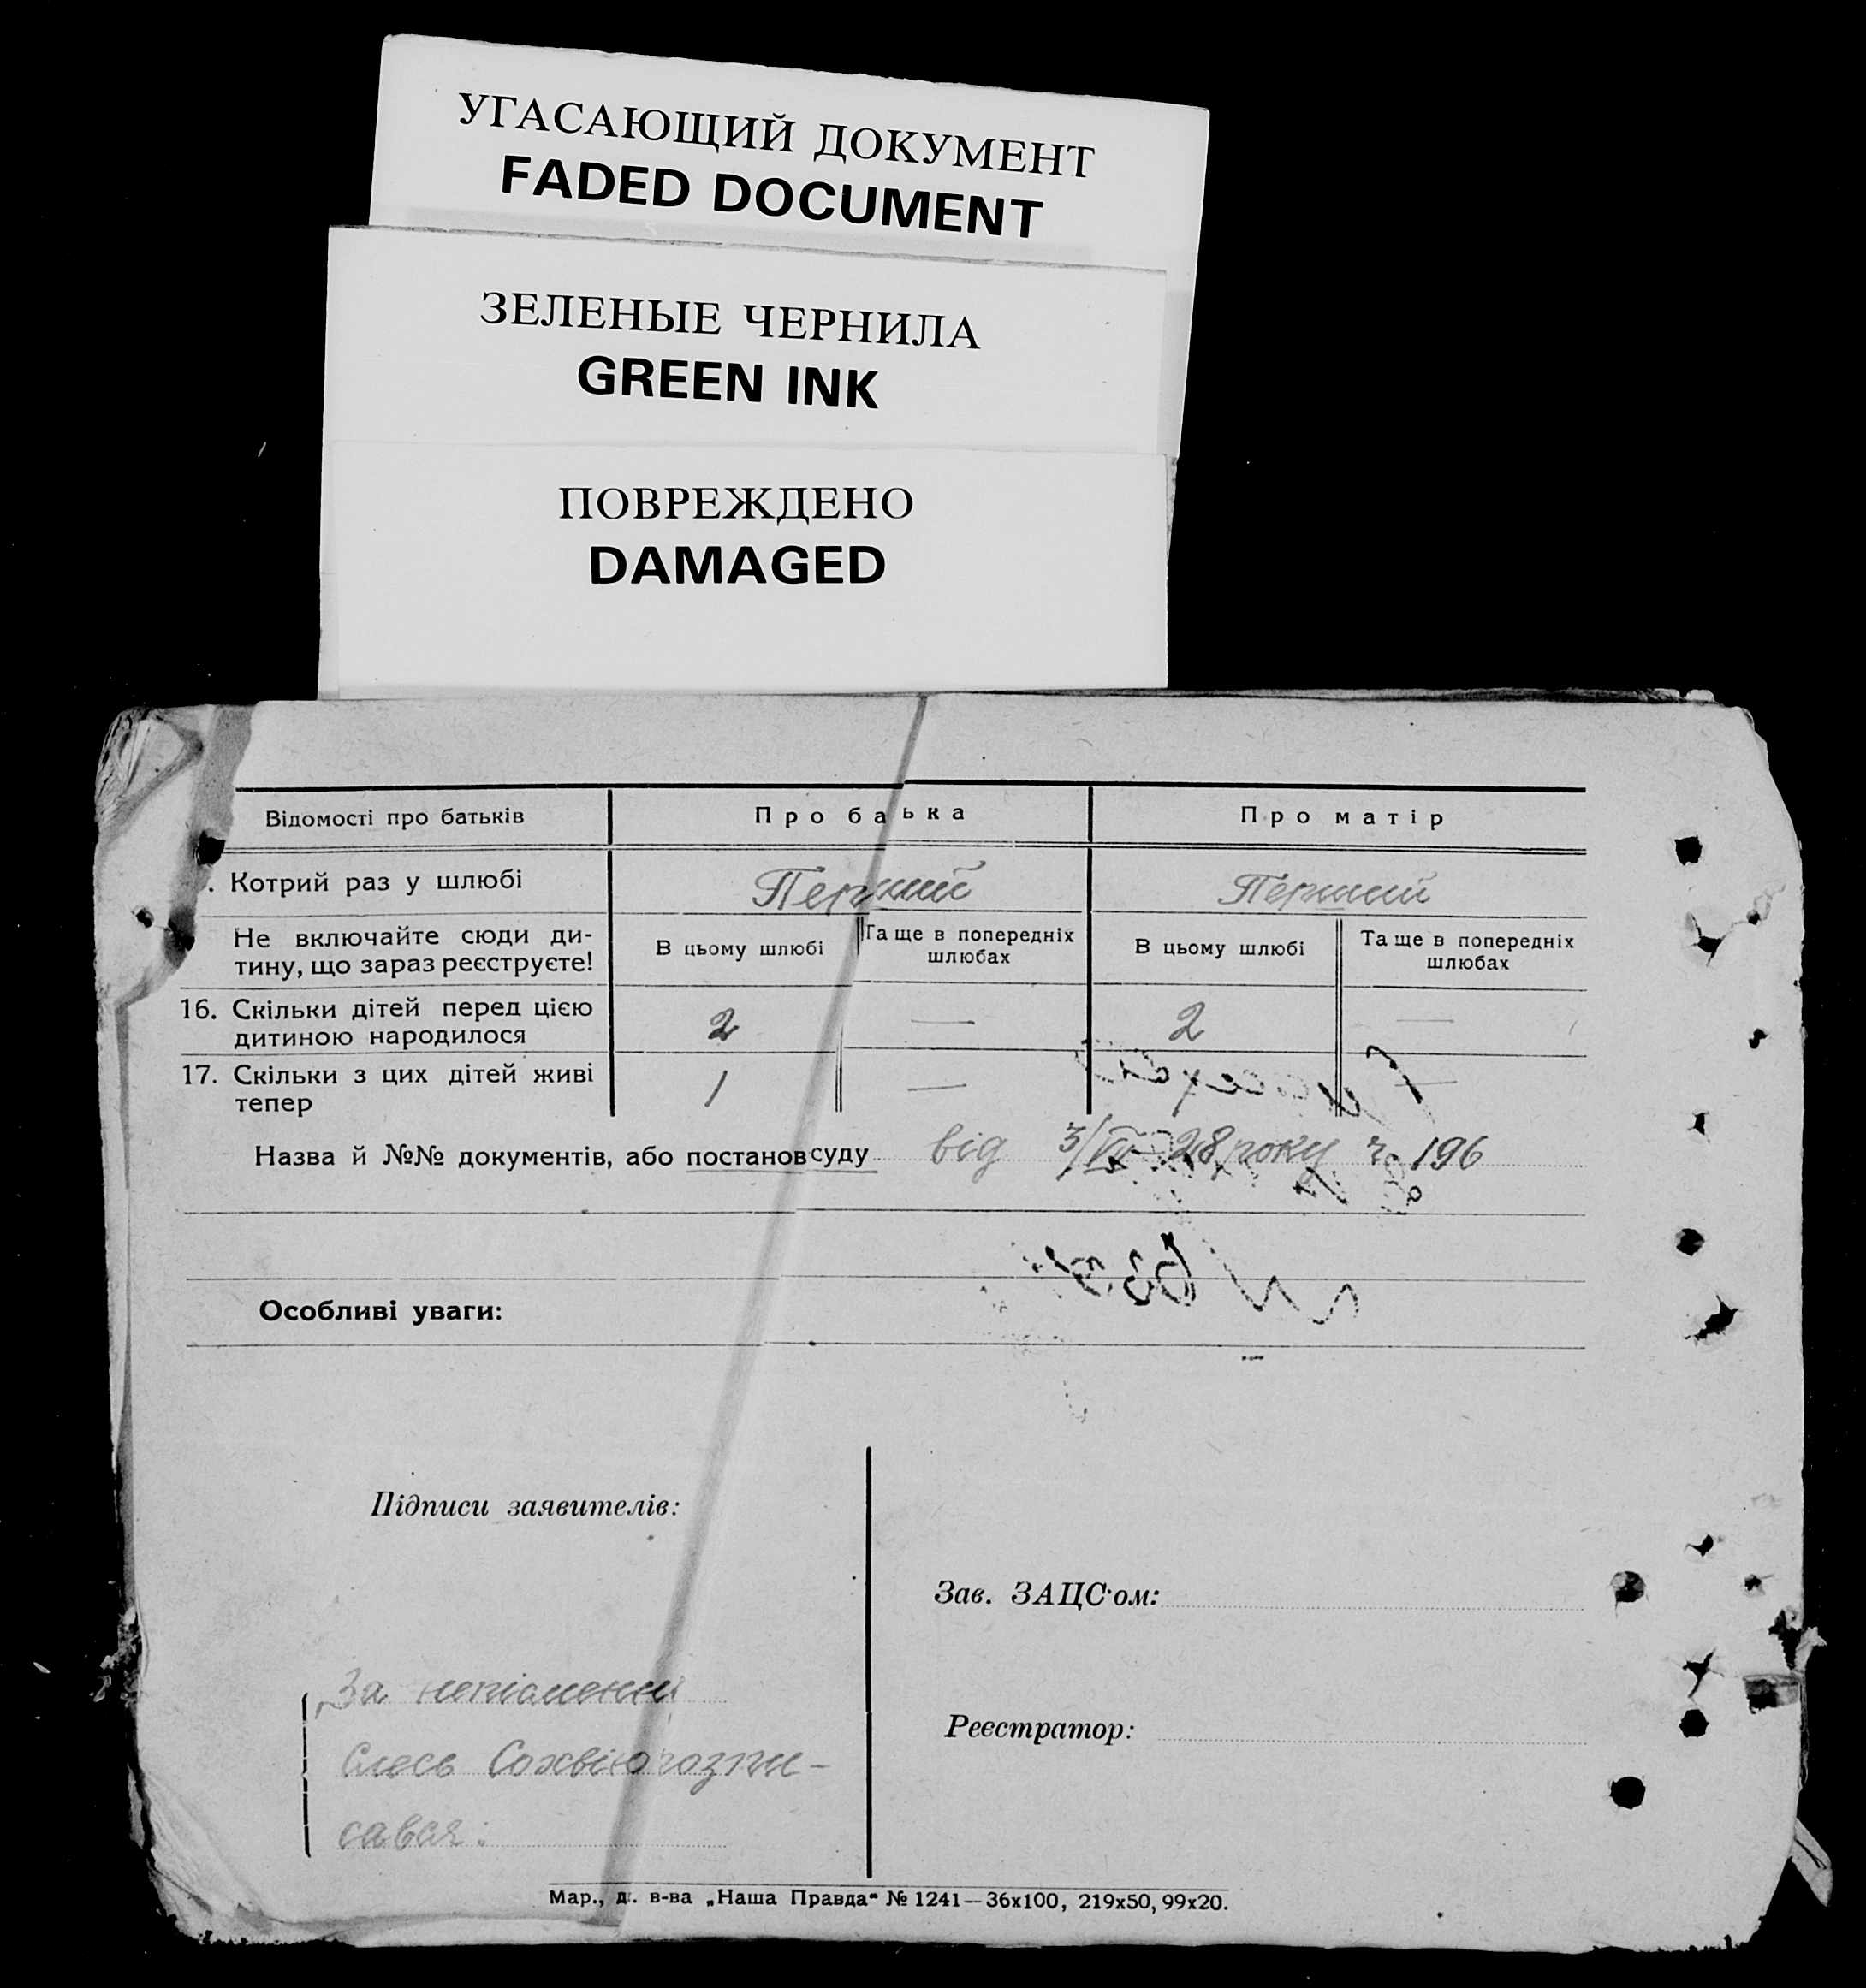 УГАСАЮЩИЙ ДОКУМЕНТ
FADED DOCUMENT
ЗЕЛЕНЫЕ ЧЕРНИЛА
GREEN INK
ПОВРЕЖДЕНО
DAMAGED
Відомості про батьків Про батька Про матір
. Котрий раз у шлюбі Перший Перший
Не включайте сюди ди-
тину, що зараз реєструєте!
В цьому шлюбі Та ще в попередніх шлюбах В цьому шлюбі Та ще в попередніх шлюбах
16. Скільки дітей перед цією
дитиною народилося 2 — 2 —
17. Скільки з цих дітей живі
тепер 1 — —
Назва й №№ документів, або постанов суду від 3/VII 28 року ч. 196
Особливі уваги:
Підписи заявителів:
Зав. ЗАЦС'ом:
За неписьменну
Реєстратор:
Слесь Сохвію розпи-
савсь:
Мар., д. в-ва „Наша Правда" № 1241—36х100, 219х50, 99х20.